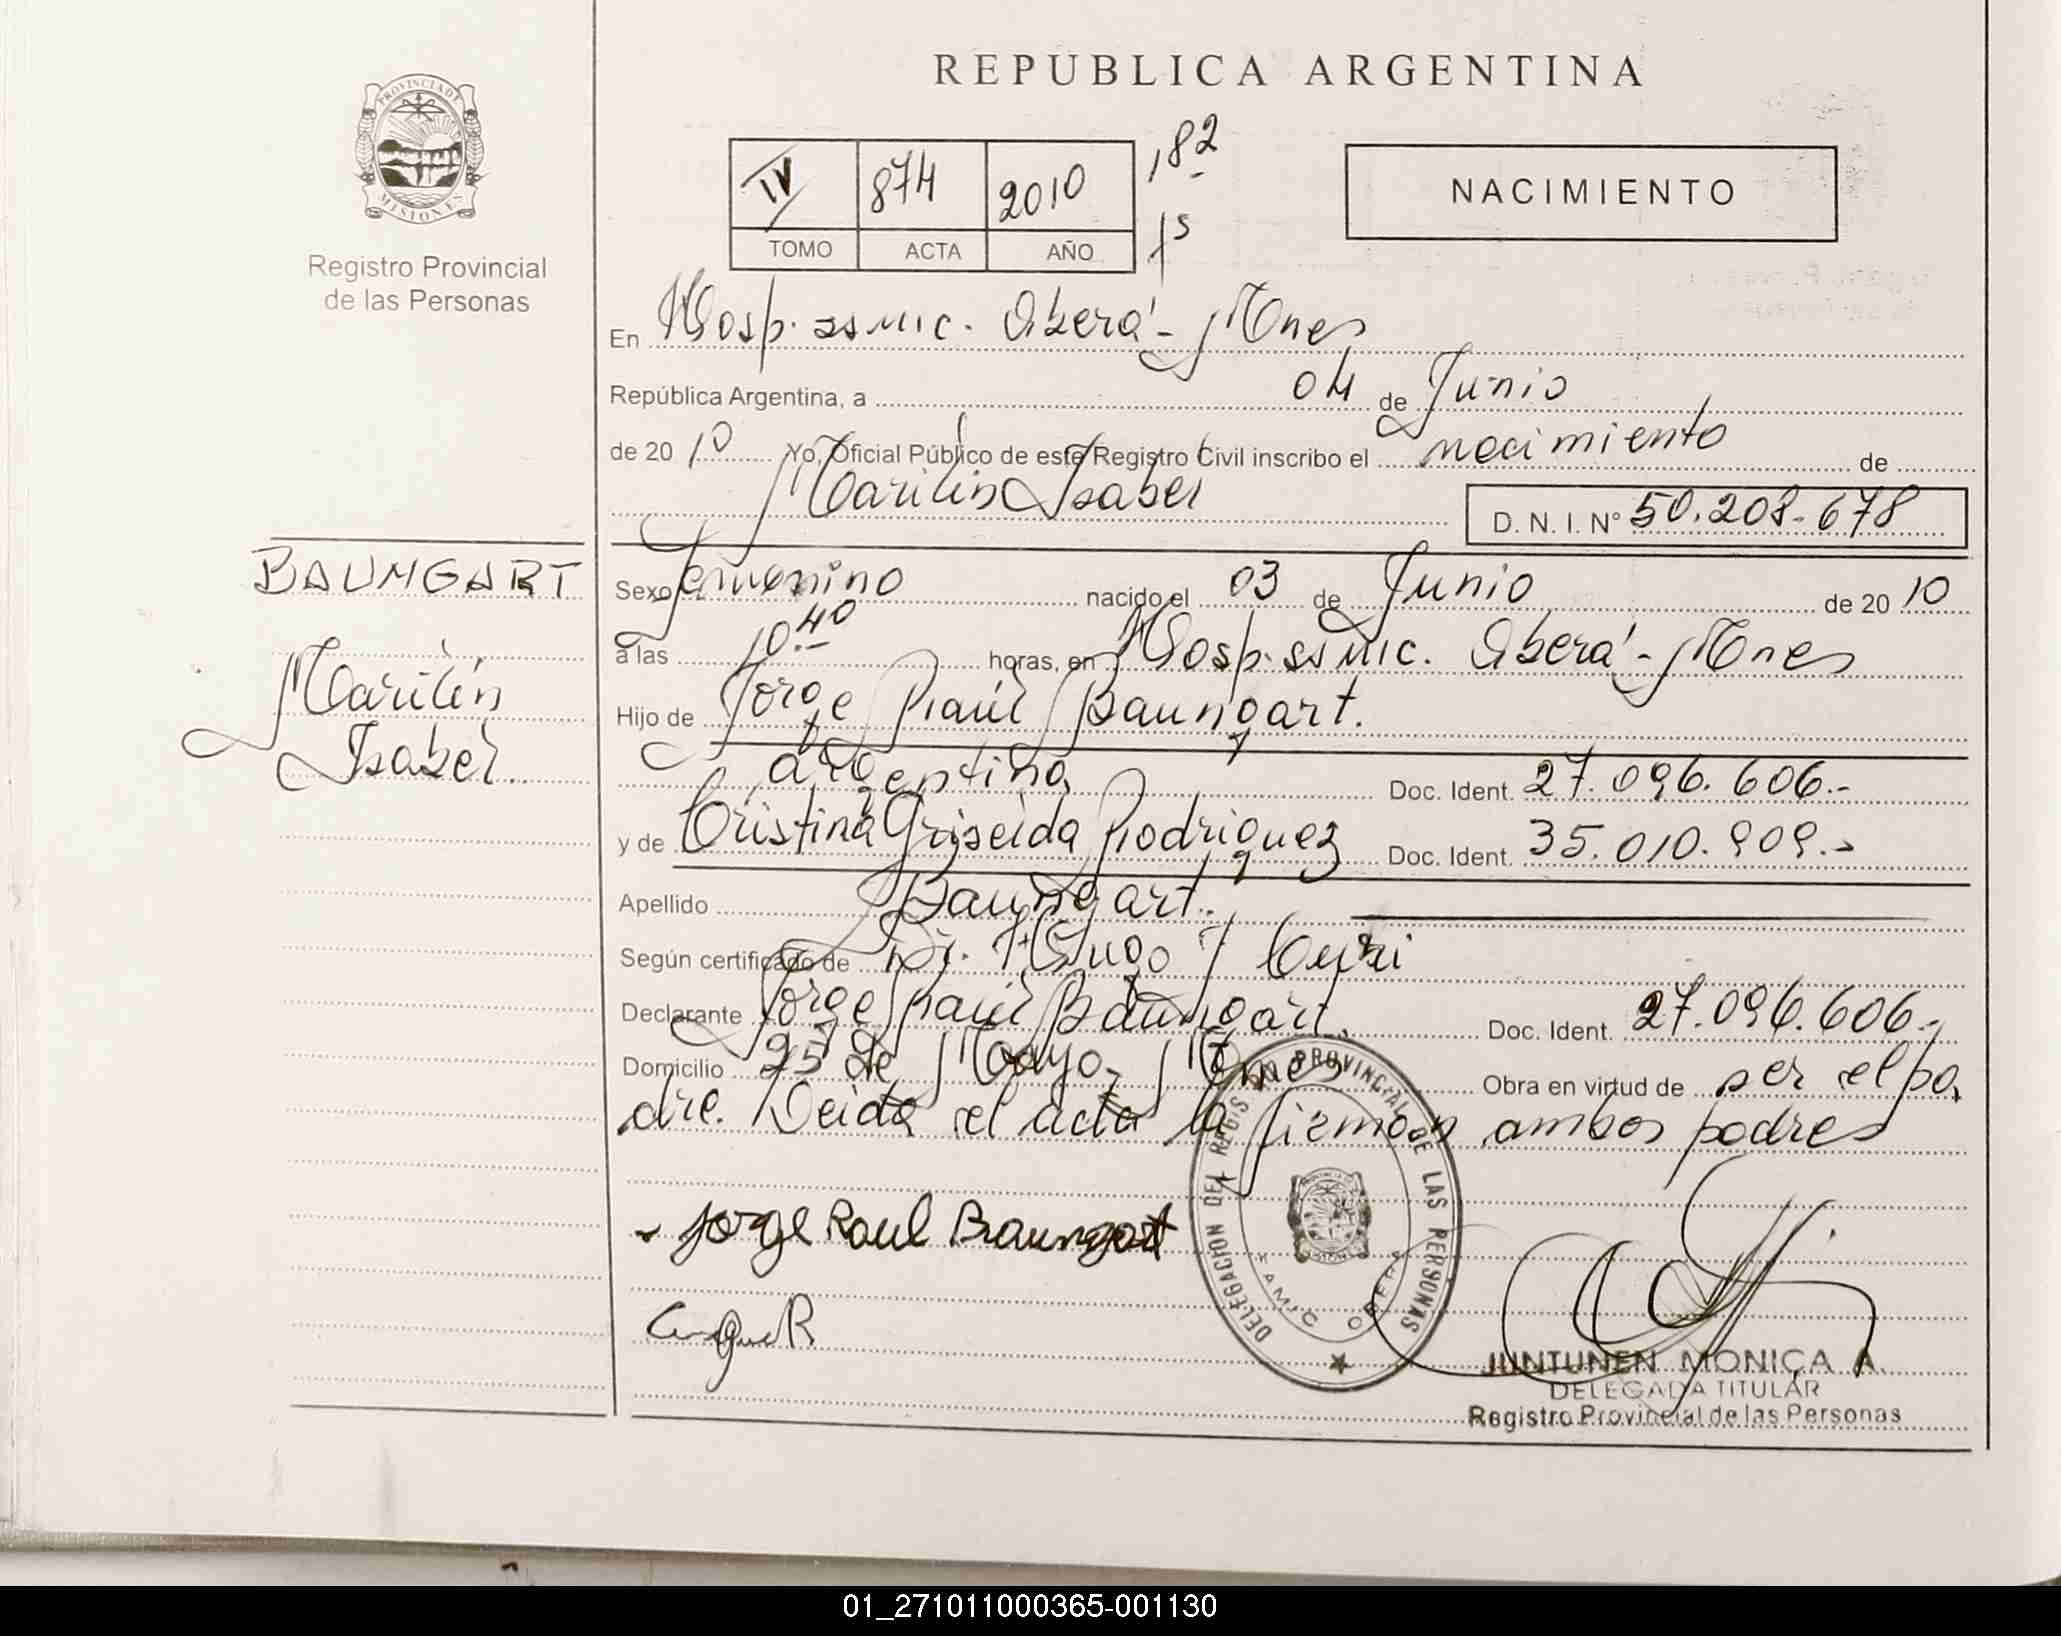 REPUBLICA ARGENTINA
PROVINCIA DE
MISIONES
Registro Provincial
de las Personas
IV 874 2010 182
TOMO ACTA AÑO
NACIMIENTO
En Hosp. SAMIC. Oberá - Mnes
República Argentina, a 04 de Junio
de 2010 Yo, Oficial Público de este Registro Civil inscribo el nacimiento de
Marilin Isabel D. N. I. Nº 50.208.678
BAUMGART
Marilin
Isabel
Sexo femenino nacido el 03 de Junio de 2010
a las 10.40 horas, en Hosp. SAMIC. Oberá - Mnes
Hijo de Jorge Raúl Baumgart.
argentina Doc. Ident. 27.096.606.-
y de Cristina Griselda Rodriguez Doc. Ident. 35.010.909.-
Apellido Baumgart.
Según certificado de Dr. Hugo
Declarante Jorge Raúl Baumgart. Doc. Ident. 27.096.606.-
Domicilio 25 de Mayo, Mnes Obra en virtud de ser el pa
dre. Leida el acta la firman ambos padres
- Jorge Raul Baumgart
DELEGACION DEL REGISTRO PROVINCIAL DE LAS PERSONAS
SAMIC OBERA
JUNTUNEN MONICA A.
DELEGADA TITULAR
Registro Provincial de las Personas
01_271011000365-001130